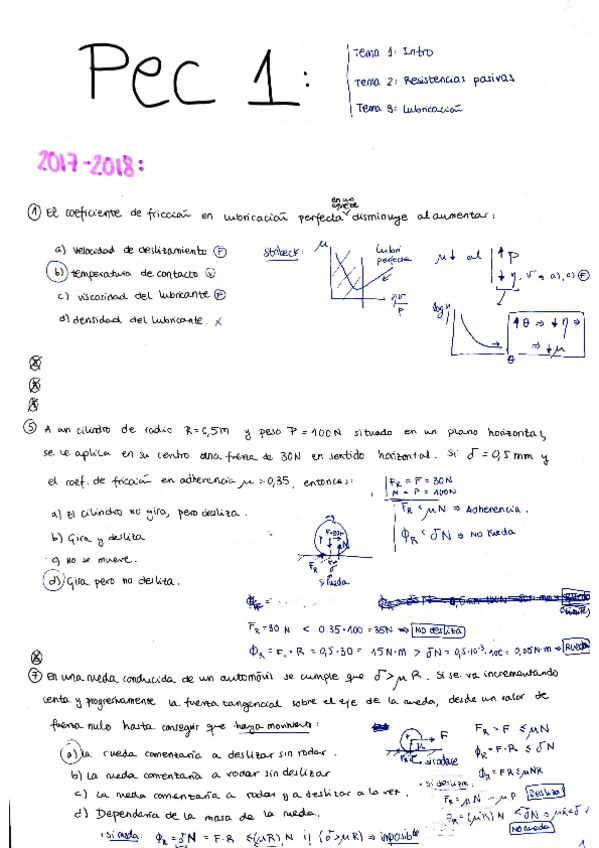 Pec 1:
Tema 1: Intro
Tema 2: Resistencias pasivas
Tema 3: Lubricación
2017-2018:
① El coeficiente de fricción en lubricación perfecta en un disminuye al aumentar:
a) velocidad de deslizamiento F
b) temperatura de contacto
c) viscosidad del lubricante F
d) densidad del lubricante. x
Stribeck:
μ
Lubri
perfecta
ηv
P
μ↓ al
↑P
↓η, v → a), c) F
log η
θ
↑θ ⇒ ↓η ⇒
⇒ ↓μ
⑤ A un cilindro de radio R=0,5m y peso P=100N situado en un plano horizontal,
se le aplica en su centro una fuerza de 30N en sentido horizontal. Si δ=0,5mm y
el coef. de fricción en adherencia μ=0,35, entonces:
a) El cilindro no gira, pero desliza.
b) Gira y desliza
c) no se mueve.
d) Gira pero no desliza.
FR = F = 30N
N = P = 100N
FR < μN ⇒ Adherencia.
ϕR < δN ⇒ No rueda
FR
N
si rueda
FR=30N < 0.35·100=35N ⇒ No desliza
ϕR = F·R = 0,5·30 = 15N·m > δN = 0,5·10⁻³·100 = 0,05N·m ⇒ Rueda
⑦ En una rueda conducida de un automóvil se cumple que δ>μR. Si se va incrementando
lenta y progresivamente la fuerza tangencial sobre el eje de la rueda, desde un valor de
fuerza nulo hasta conseguir que haya movimiento:
a) la rueda comenzaría a deslizar sin rodar.
b) la rueda comenzaría a rodar sin deslizar
c) la rueda comenzaría a rodar y a deslizar a la vez.
d) Dependería de la masa de la rueda.
F
FR = F ≤ μN
ϕR = F·R ≤ δN
ϕR = FR ≤ μNR
FR = μN = μP Desliza
No rueda
· si rueda: ϕR = δN = F·R ≤ (μR)N !! (δ>μR) ⇒ imposible